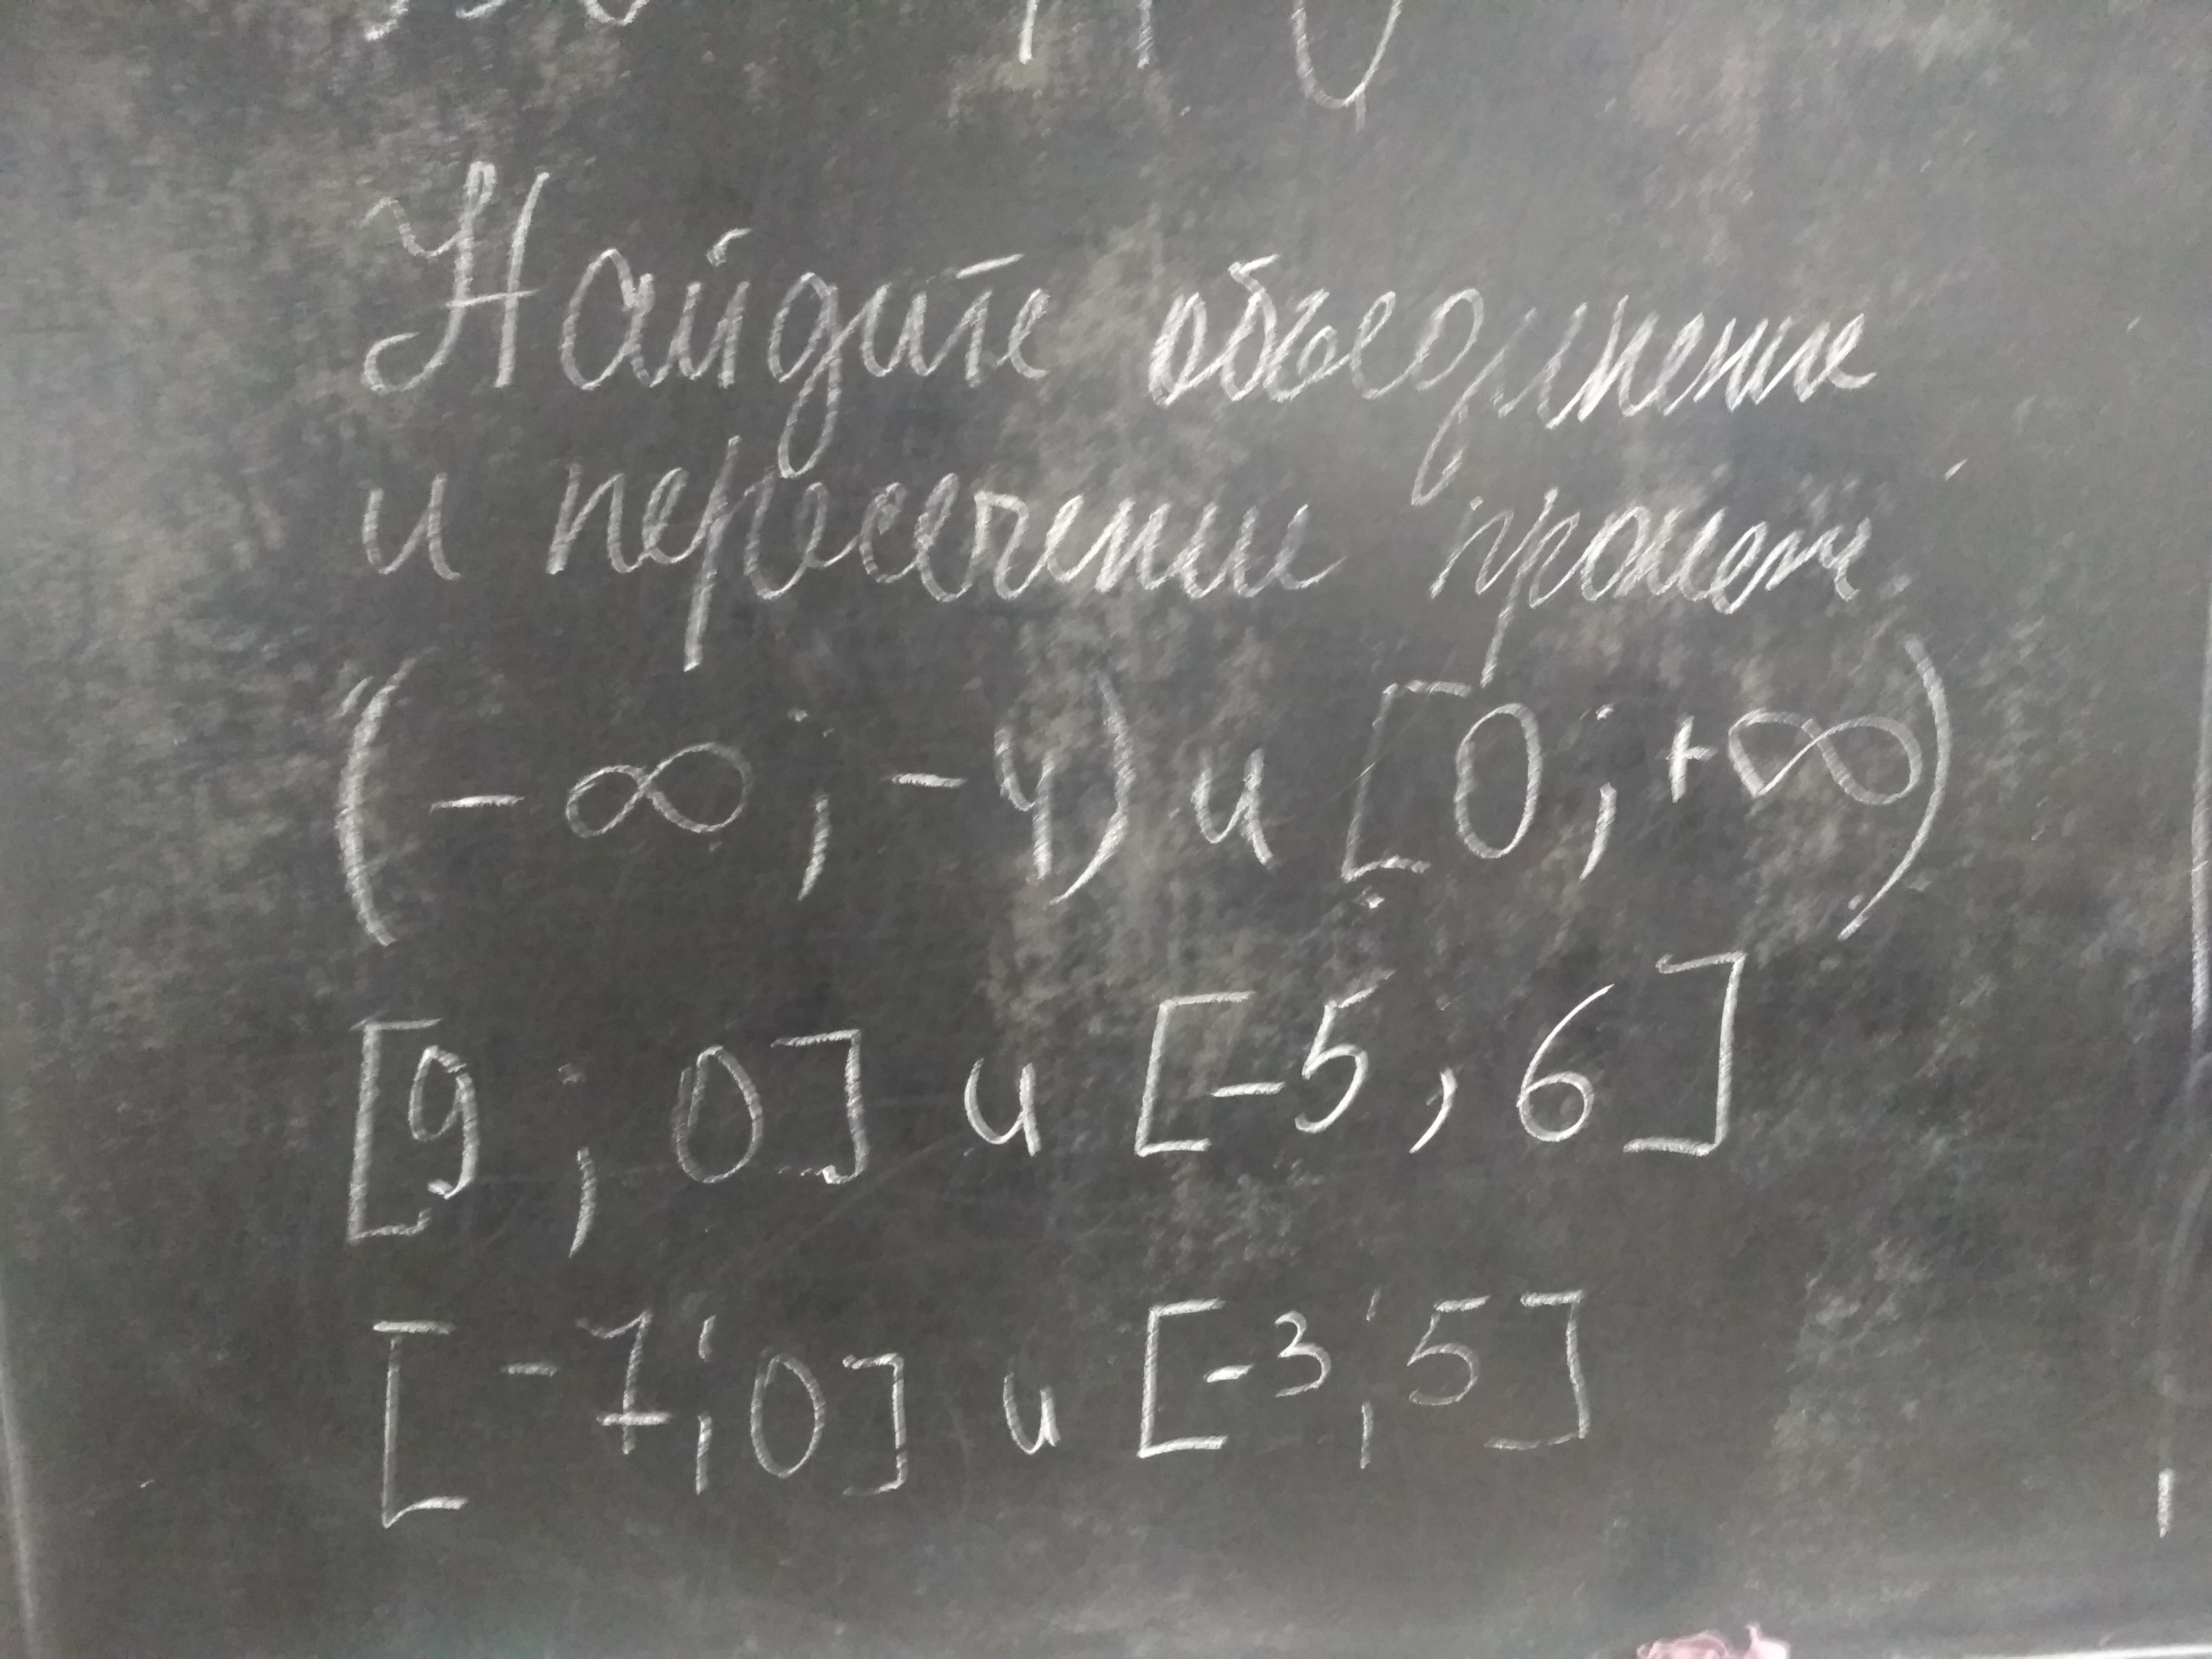 Найдите объединение
и пересечение промеж.
(-∞; -4) и [0; +∞)
[9; 0] и [-5; 6]
[-7; 0] и [-3; 5]